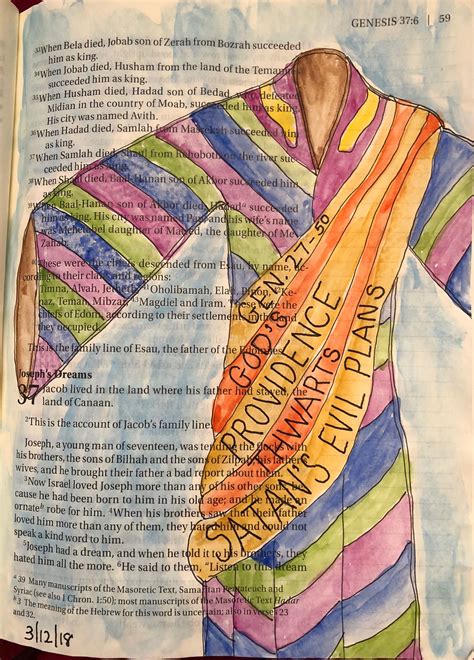 GENESIS 37:6 | 59
33When Bela died, Jobab son of Zerah from Bozrah succeeded
him as king.
34When Jobab died, Husham from the land of the Temanites
succeeded him as king.
35When Husham died, Hadad son of Bedad, who defeated
Midian in the country of Moab, succeeded him as king.
His city was named Avith.
36When Hadad died, Samlah from Masrekah succeeded him
as king.
37When Samlah died, Shaul from Rehoboth on the river suc-
ceeded him as king.
38When Shaul died, Baal-Hanan son of Akbor succeeded him
as king.
39When Baal-Hanan son of Akbor died, Hadad succeeded
him as king. His city was named Pau, and his wife's name
was Mehetabel daughter of Matred, the daughter of Me-
Zahab.
These were the chiefs descended from Esau, by name, ac-
cording to their clans and regions:
Timna, Alvah, Jetheth, Oholibamah, Elah, Pinon, Ke-
naz, Teman, Mibzar, Magdiel and Iram. These were the
chiefs of Edom, according to their settlements in the land
they occupied.
This is the family line of Esau, the father of the Edomites.
Joseph's Dreams
37 Jacob lived in the land where his father had stayed, the
land of Canaan.
2This is the account of Jacob's family line.
Joseph, a young man of seventeen, was tending the flocks with
his brothers, the sons of Bilhah and the sons of Zilpah, his father's
wives, and he brought their father a bad report about them.
3Now Israel loved Joseph more than any of his other sons, be-
cause he had been born to him in his old age; and he made an
ornate robe for him. 4When his brothers saw that their father
loved him more than any of them, they hated him and could not
speak a kind word to him.
5Joseph had a dream, and when he told it to his brothers, they
hated him all the more. 6He said to them, "Listen to this dream
a 39 Many manuscripts of the Masoretic Text, Samaritan Pentateuch and
Syriac (see also 1 Chron. 1:50); most manuscripts of the Masoretic Text Hadar
b 3 The meaning of the Hebrew for this word is uncertain; also in verses 23
and 32.
GEN. 27-50
GOD'S
PROVIDENCE
THWARTS
SATAN'S EVIL PLANS
3/12/18